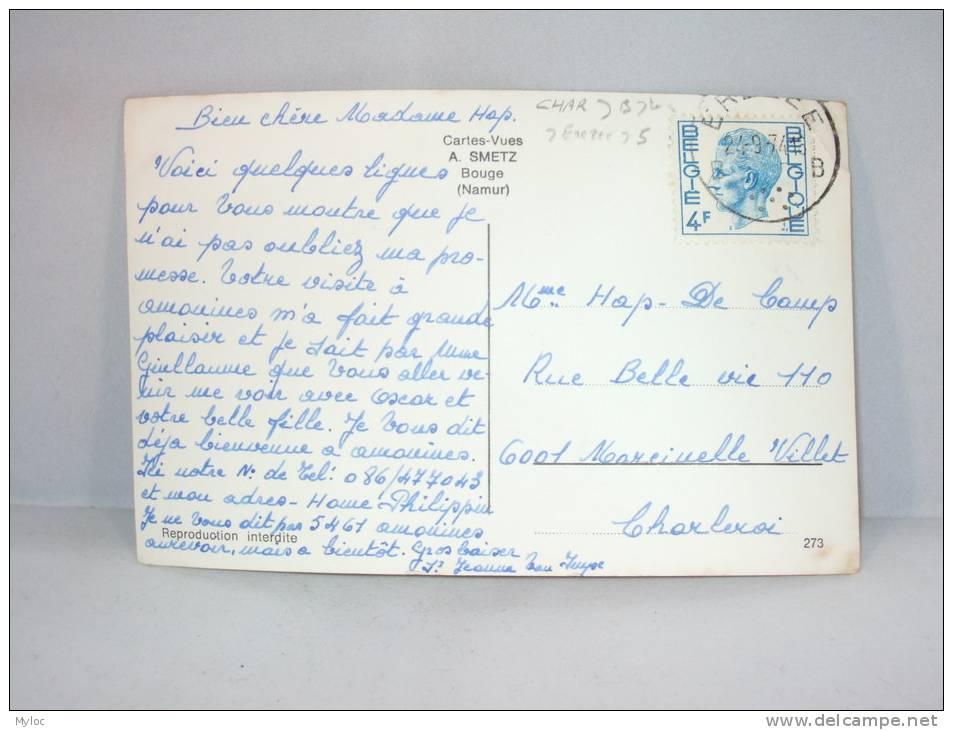 Bien chère Madame Hap.
Voici quelques lignes
pour Vous montre que Je
n'ai pas oubliez ma pro-
messe. Votre visite à
amonines m'a fait grande
plaisir et Je sait par Mme
Guillaume que Vous aller ve-
nir me voir avec Oscar et
votre belle fille. Je Vous dit
déja bienvenue a amonines.
Ici notre N° de Tel: 086/477043
et mon adres - Home Philippin
Je ne Vous dit pas 5461 amonines
aurevoir, mais a bientôt. Gros baiser
Jeanne Van
Reproduction interdite
Cartes-Vues
A. SMETZ
Bouge
(Namur)
CHAR
EREZEE
24-9-74
B
BELGIË
BELGIQUE
4F
Mme Hap-De Camp
Rue Belle vie 110
6001 Marcinelle Villet
Charleroi
273
Myloc
www.delcampe.net